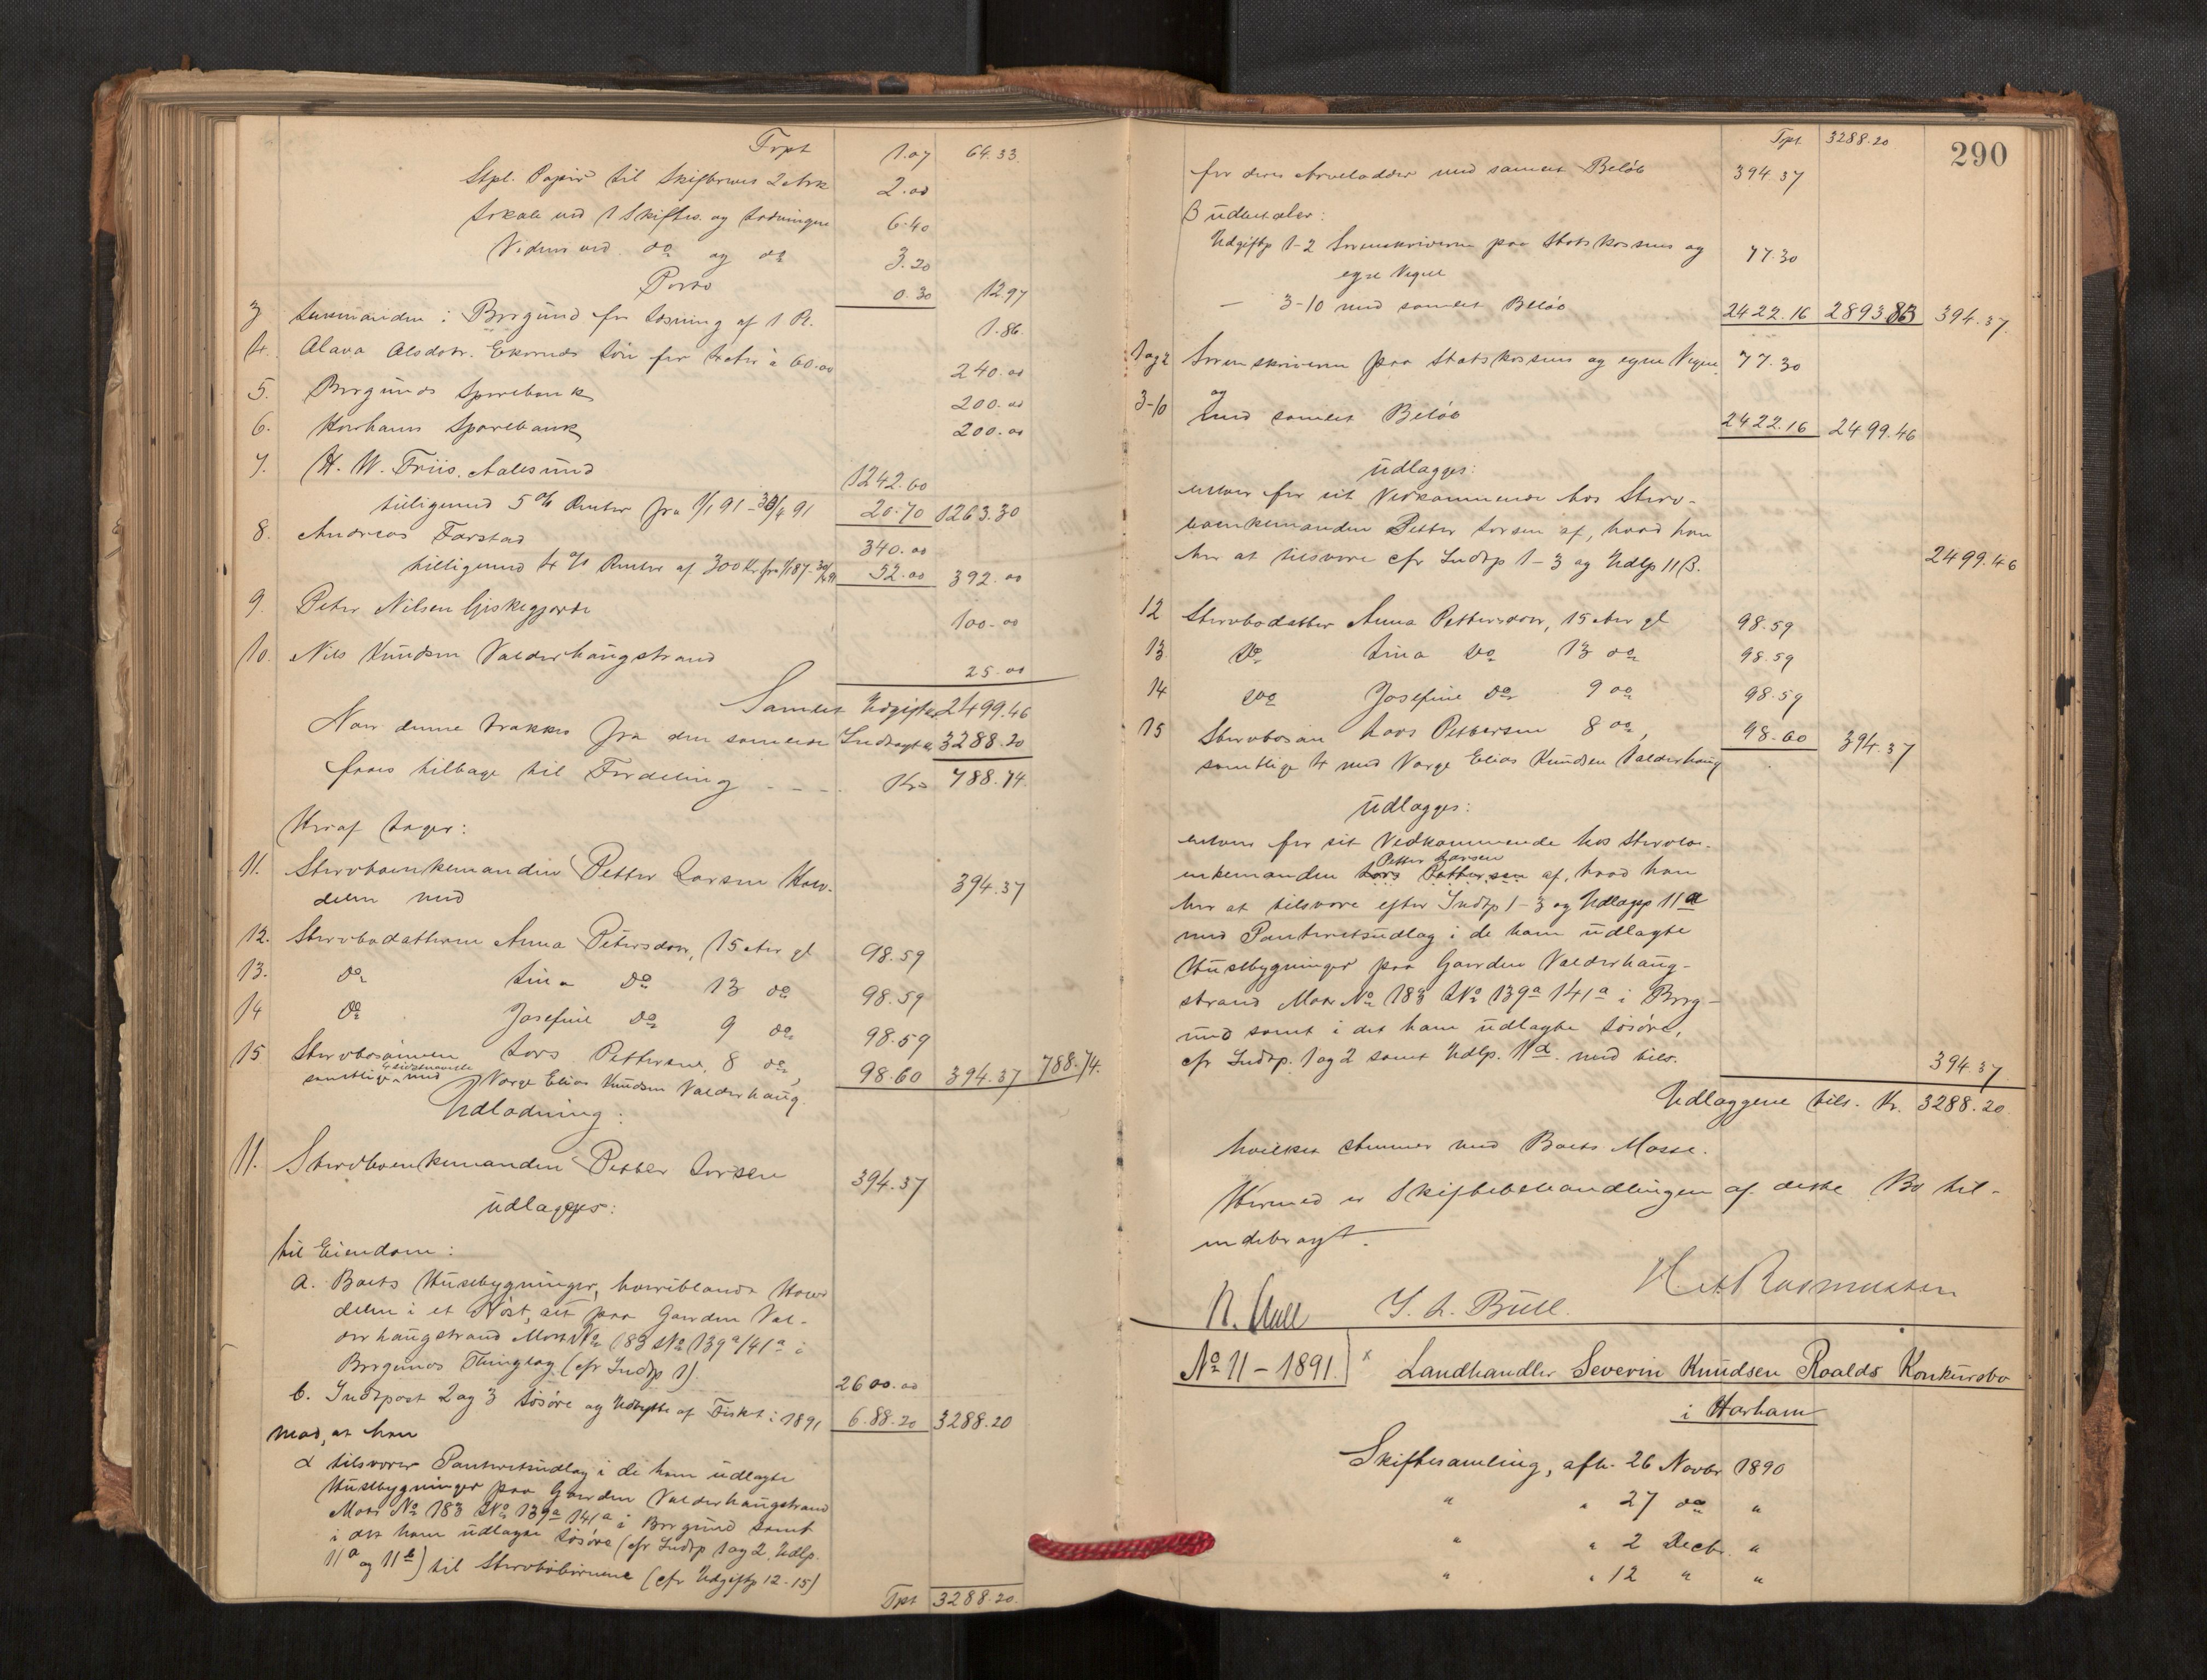 Trpt 1.07 64.33
Stpl. Papir til Skiftebrevet 2 Ark 2.00
Lokale ved 1 Skiftes. og Lodningen 6.40
Vidner ved do og do 3.20
Porto 0.30 12.97
3 Lensmanden i Borgund for Løsning af 1 R. 1.86
4. Olava Olsdotr. Ekornes Løn for 4 Aar à 60.00 240.00
5. Borgunds Sparebank 200.00
6. Harhams Sparebank 200.00
7. H. W. Friis. Aalesund 1242.60
tilligemed 5 % Renter fra 1/1 91 - 30/4 91 20.70 1263.30
8. Andreas Farstad 340.00
tilligemed 4 % Renter af 300 Kr. fra 1/1 87 - 30/4 91 52.00 392.00
9. Peter Nilsen Giskegjerde 100.00
10. Nils Knudsen Valderhaugstrand 25.00
Samlet Udgifter 2499.46
Naar denne trækkes fra den samlede Indtægt 3288.20
faaes tilbage til Fordeling - - - Kr. 788.74.
Heraf tager:
11. Stervboenkemanden Petter Larsen Hov-
delen med 394.37
12. Stervbodatteren Anna Petersdotr, 15 Aar gl 98.59
13. do Lina do 13 do 98.59
14 do Josefine do 9 do 98.59
15 Stervbosønnen Lars Pettersen, 8 do, 98.60 394.37 788.74.
samtlige med Værge Elias Knudsen Valderhaug.
Udlodning:
11. Stervboenkemanden Petter Larsen 394.37
udlægges:
til Eiendom:
a. Boets Husebygninger, heriblandt Hoved
delen i et Nøst, alt paa Gaarden Val-
derhaugstrand Matr No 183 LNo 139a 141a i
Borgunds Thinglag (cfr Indtp 1). 2600.00
b. Indtpost 2 og 3 Løsøre og Udbytte af Fisket i 1891 6.88.20 3288.20
mod, at han
α tilsvarer Panteretsudlæg i de ham udlagte
Husebygninger paa Gaarden Valderhaugstrand
Matr No 183 LNo 139a 141a i Borgund samt
i det ham udlagte Løsøre (cfr Indtp 1 og 2, Udlp.
11a og 11b) til Stervbobørnene (cfr Udgiftp 12-15)
Trpt 3288.20.
290
Trpt. 3288.20
for deres Arvelodder med samlet Beløb 394.37
β udbetaler:
Udgiftp 1-2 Sorenskriveren paa Statskassens og
egne Vegne 77.30
— 3-10 med samlet Beløb 2422.16 2893.83 394.37.
1 og 2 Sorenskriveren paa Statskassens og egne Vegne 77.30
og
3-10 med samlet Beløb 2422.16 2499.46
udlægges:
enhver for sit Vedkommende hos Sterv-
boenkemanden Petter Larsen af, hvad han
har at tilsvare cfr Indtp 1-3 og Udlp 11β. 2499.46
12 Stervbodatter Anna Pettersdotr, 15 Aar gl 98.59
13 do Lina do 13 do 98.59
14 do Josefine do 9 do 98.59
15 Stervbosøn Lars Pettersen 8 do, 98.60 394.37
samtlige 4 med Værge Elias Knudsen Valderhaug
udlægges:
enhver for sit Vedkommende hos Stervbo-
Petter Larsen
enkemanden Lars Pettersen af, hvad han
har at tilsvare efter Indtp 1-3 og Udlægp 11α
med Panteretsudlæg i de ham udlagte
Husebygninger paa Gaarden Valderhaug-
strand Matr No 183 LNo 139a 141a i Borg-
und samt i det ham udlagte Løsøre,
cfr Indtp. 1 og 2 samt Udlp. 11α. med tils. 394.37
Udlæggene tils. Kr. 3288.20.
hvilket stemmer med Boets Masse.
Hermed er Skiftebehandlingen af dette Bo til-
endebragt.
Rasmussen
S. L. Bull.
No 11 - 1891. x Landhandler Severin Knudsen Roalds Konkursbo
i Harham
Skiftesamling, afh. 26 Novbr 1890
" " 27 do "
" " 2 Decbr. "
" " 12 " "